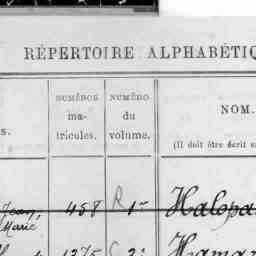 RÉPERTOIRE ALPHABÉTIQ
NUMÉROS
ma-
tricules.
NUMÉRO
du
volume.
NOM.
(Il doit être écrit e
s.
Jean, 458 R 1er Halopa
Marie
1375 C 2e Haman